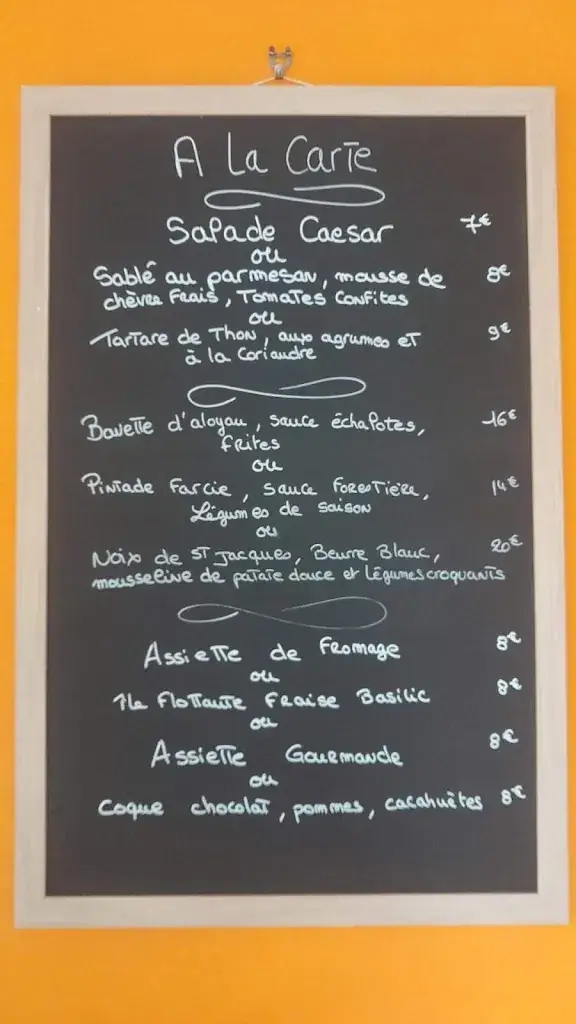 A La Carte
Salade Caesar 7€
ou
Sablé au parmesan, mousse de 8€
chèvre Frais, Tomates Confites
ou
Tartare de Thon, aux agrumes et 9€
à la Coriandre
Bavette d'aloyau, sauce échalotes, 16€
frites
ou
Pintade Farcie, sauce Forestière, 14€
Légumes de saison
ou
Noix de St Jacques, Beurre Blanc, 20€
mousseline de patate douce et Légumes croquants
Assiette de Fromage 8€
ou
île Flottante Fraise Basilic 8€
ou
Assiette Gourmande 8€
ou
Coque chocolat, pommes, cacahuètes 8€